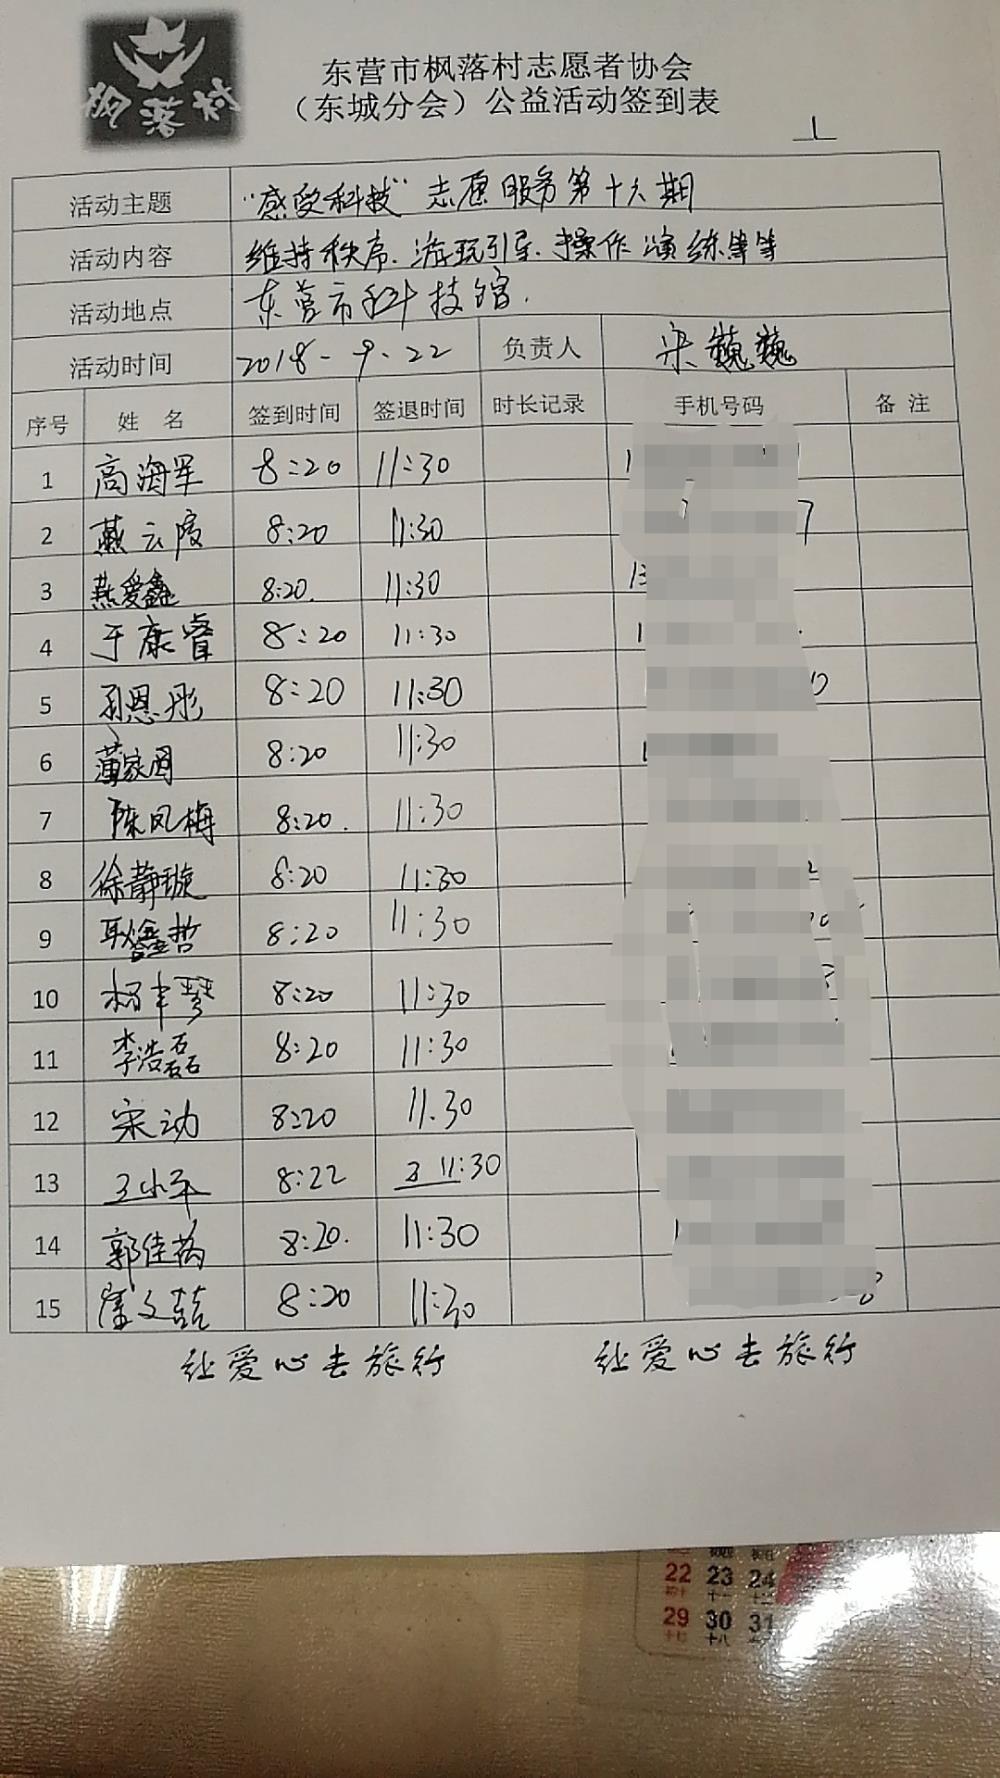 枫落村
东营市枫落村志愿者协会
（东城分会）公益活动签到表
1
活动主题 “感受科技”志愿服务第十六期
活动内容 维持秩序.游玩引导.操作演练等等
活动地点 东营市科技馆.
活动时间 2018-9-22 负责人 宋巍巍
序号 姓 名 签到时间 签退时间 时长记录 手机号码 备 注
1 高海军 8:20 11:30 1
2 燕云霞 8:20 11:30 7
3 燕爱鑫 8:20. 11:30 13
4 于康睿 8:20 11:30 1
5 孙恩彤 8:20 11:30 0
6 薄家阔 8:20 11:30
7 陈凤梅 8:20. 11:30
8 徐静璇 8:20 11:30 2
9 耿鑫哲 8:20 11:30
10 杨丰琴 8:20 11:30
11 李浩磊 8:20 11:30
12 宋动 8:20 11.30
13 王小平 8:22 11:30
14 郭佳 8:20. 11:30
15 文喆 8:20 11:30 8
让爱心去旅行 让爱心去旅行
22 23 24
初十 十一 十二
29 30 31
十七 十八